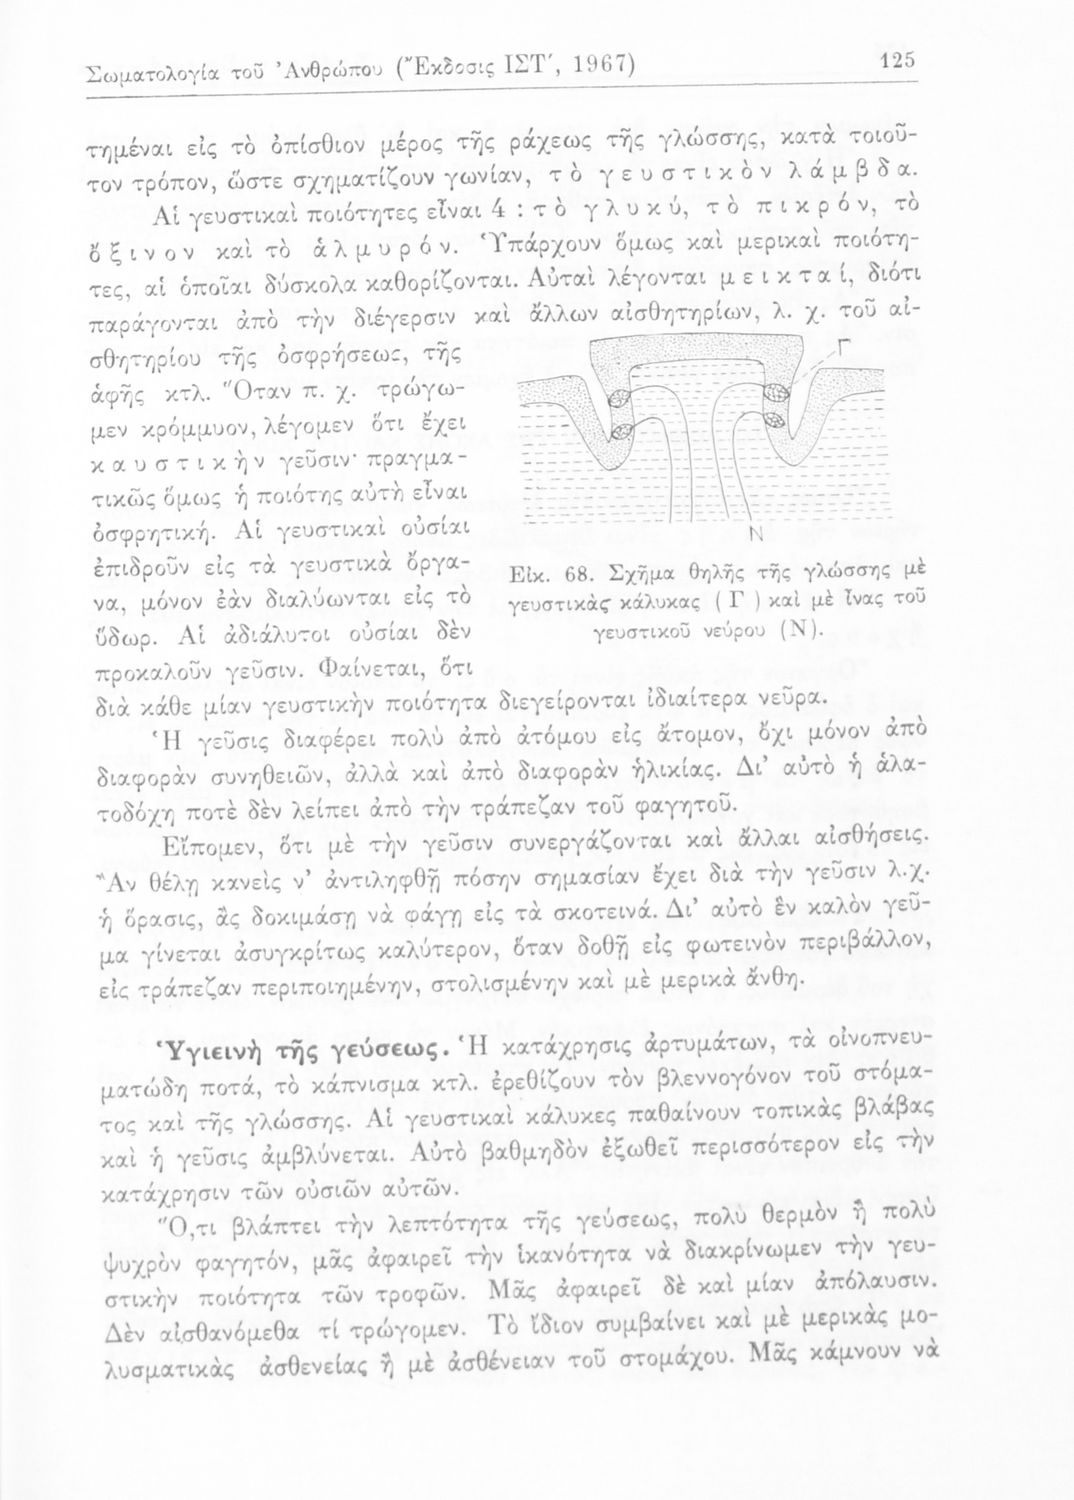 Σωματολογία τοῦ Ἀνθρώπου (Ἔκδοσις ΙΣΤ', 1967) 125
τημέναι εἰς τὸ ὀπίσθιον μέρος τῆς ράχεως τῆς γλώσσης, κατὰ τοιοῦ-
τον τρόπον, ὥστε σχηματίζουν γωνίαν, τὸ γευστικὸν λάμβδα.
Αἱ γευστικαὶ ποιότητες εἶναι 4 : τὸ γλυκύ, τὸ πικρόν, τὸ
ὄξινον καὶ τὸ ἁλμυρόν. Ὑπάρχουν ὅμως καὶ μερικαὶ ποιότη-
τες, αἱ ὁποῖαι δύσκολα καθορίζονται. Αὐταὶ λέγονται μεικταί, διότι
παράγονται ἀπὸ τὴν διέγερσιν καὶ ἄλλων αἰσθητηρίων, λ. χ. τοῦ αἰ-
σθητηρίου τῆς ὀσφρήσεως, τῆς
ἁφῆς κτλ. Ὅταν π. χ. τρώγω-
μεν κρόμμυον, λέγομεν ὅτι ἔχει
καυστικὴν γεῦσιν· πραγμα-
τικῶς ὅμως ἡ ποιότης αὐτὴ εἶναι
ὀσφρητική. Αἱ γευστικαὶ οὐσίαι
ἐπιδροῦν εἰς τὰ γευστικὰ ὄργα-
να, μόνον ἐὰν διαλύωνται εἰς τὸ
ὕδωρ. Αἱ ἀδιάλυτοι οὐσίαι δὲν
προκαλοῦν γεῦσιν. Φαίνεται, ὅτι
Γ
N
Εἰκ. 68. Σχῆμα θηλῆς τῆς γλώσσης μὲ
γευστικὰς κάλυκας ( Γ ) καὶ μὲ ἶνας τοῦ
γευστικοῦ νεύρου (Ν).
διὰ κάθε μίαν γευστικὴν ποιότητα διεγείρονται ἰδιαίτερα νεῦρα.
Ἡ γεῦσις διαφέρει πολὺ ἀπὸ ἀτόμου εἰς ἄτομον, ὄχι μόνον ἀπὸ
διαφορὰν συνηθειῶν, ἀλλὰ καὶ ἀπὸ διαφορὰν ἡλικίας. Δι' αὐτὸ ἡ ἁλα-
τοδόχη ποτὲ δὲν λείπει ἀπὸ τὴν τράπεζαν τοῦ φαγητοῦ.
Εἴπομεν, ὅτι μὲ τὴν γεῦσιν συνεργάζονται καὶ ἄλλαι αἰσθήσεις.
Ἂν θέλῃ κανεὶς ν' ἀντιληφθῇ πόσην σημασίαν ἔχει διὰ τὴν γεῦσιν λ.χ.
ἡ ὅρασις, ἂς δοκιμάσῃ νὰ φάγῃ εἰς τὰ σκοτεινά. Δι' αὐτὸ ἓν καλὸν γεῦ-
μα γίνεται ἀσυγκρίτως καλύτερον, ὅταν δοθῇ εἰς φωτεινὸν περιβάλλον,
εἰς τράπεζαν περιποιημένην, στολισμένην καὶ μὲ μερικὰ ἄνθη.
Ὑγιεινὴ τῆς γεύσεως. Ἡ κατάχρησις ἀρτυμάτων, τὰ οἰνοπνευ-
ματώδη ποτά, τὸ κάπνισμα κτλ. ἐρεθίζουν τὸν βλεννογόνον τοῦ στόμα-
τος καὶ τῆς γλώσσης. Αἱ γευστικαὶ κάλυκες παθαίνουν τοπικὰς βλάβας
καὶ ἡ γεῦσις ἀμβλύνεται. Αὐτὸ βαθμηδὸν ἐξωθεῖ περισσότερον εἰς τὴν
κατάχρησιν τῶν οὐσιῶν αὐτῶν.
Ὅ,τι βλάπτει τὴν λεπτότητα τῆς γεύσεως, πολὺ θερμὸν ἢ πολὺ
ψυχρὸν φαγητόν, μᾶς ἀφαιρεῖ τὴν ἱκανότητα νὰ διακρίνωμεν τὴν γευ-
στικὴν ποιότητα τῶν τροφῶν. Μᾶς ἀφαιρεῖ δὲ καὶ μίαν ἀπόλαυσιν.
Δὲν αἰσθανόμεθα τί τρώγομεν. Τὸ ἴδιον συμβαίνει καὶ μὲ μερικὰς μο-
λυσματικὰς ἀσθενείας ἢ μὲ ἀσθένειαν τοῦ στομάχου. Μᾶς κάμνουν νὰ